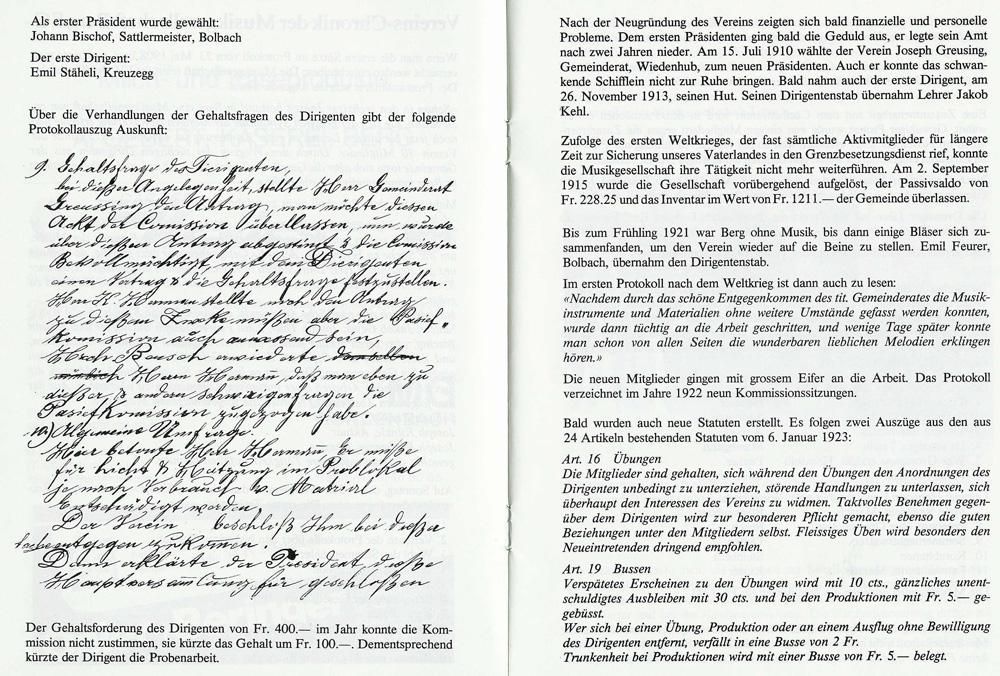 Als erster Präsident wurde gewählt:
Johann Bischof, Sattlermeister, Bolbach
Der erste Dirigent:
Emil Stäheli, Kreuzegg
Über die Verhandlungen der Gehaltsfragen des Dirigenten gibt der folgende
Protokollauszug Auskunft:
9. Gehaltsfrage des Dierigenten,
bei dießer Angelegenheit, stellte Herr Gemeinderat
Greussing den Antrag, man möchte diessen
Ackt der Comission überlassen, nun wurde
über dießen Antrag abgestimt & die Comission
Bevollmächtigt mit dem Dierigenten
einen Vertrag & die Gehaltsfrage festzustellen.
Herr H. Herman stellte noch den Antrag
zu dießem Zwecke müßen aber die Pasief„
komission auch anwessend sein,
Hrch Bausch erwiederte
Herrn Herman, daß man eben zu
dießer & andern schwierigen fragen die
Pasiefkomission zugezogen habe.
10.) Algemeine Umfrage.
Hier betonte Herr Herman, Er müße
für Licht & Heitzung im Problokal
je nach Verbrauch v. Matrial
Entschädigt werden.
Der Verein beschloß Ihm bei dießer
entgegen zu komen.
Dann erklärte der President, dieße
Hauptversamlung für geschloßen
Der Gehaltsforderung des Dirigenten von Fr. 400.— im Jahr konnte die Kom-
mission nicht zustimmen, sie kürzte das Gehalt um Fr. 100.—. Dementsprechend
kürzte der Dirigent die Probenarbeit.
Nach der Neugründung des Vereins zeigten sich bald finanzielle und personelle
Probleme. Dem ersten Präsidenten ging bald die Geduld aus, er legte sein Amt
nach zwei Jahren nieder. Am 15. Juli 1910 wählte der Verein Joseph Greusing,
Gemeinderat, Wiedenhub, zum neuen Präsidenten. Auch er konnte das schwan-
kende Schifflein nicht zur Ruhe bringen. Bald nahm auch der erste Dirigent, am
26. November 1913, seinen Hut. Seinen Dirigentenstab übernahm Lehrer Jakob
Kehl.
Zufolge des ersten Weltkrieges, der fast sämtliche Aktivmitglieder für längere
Zeit zur Sicherung unseres Vaterlandes in den Grenzbesetzungsdienst rief, konnte
die Musikgesellschaft ihre Tätigkeit nicht mehr weiterführen. Am 2. September
1915 wurde die Gesellschaft vorübergehend aufgelöst, der Passivsaldo von
Fr. 228.25 und das Inventar im Wert von Fr. 1211.— der Gemeinde überlassen.
Bis zum Frühling 1921 war Berg ohne Musik, bis dann einige Bläser sich zu-
sammenfanden, um den Verein wieder auf die Beine zu stellen. Emil Feurer,
Bolbach, übernahm den Dirigentenstab.
Im ersten Protokoll nach dem Weltkrieg ist dann auch zu lesen:
«Nachdem durch das schöne Entgegenkommen des tit. Gemeinderates die Musik-
instrumente und Materialien ohne weitere Umstände gefasst werden konnten,
wurde dann tüchtig an die Arbeit geschritten, und wenige Tage später konnte
man schon von allen Seiten die wunderbaren lieblichen Melodien erklingen
hören.»
Die neuen Mitglieder gingen mit grossem Eifer an die Arbeit. Das Protokoll
verzeichnet im Jahre 1922 neun Kommissionssitzungen.
Bald wurden auch neue Statuten erstellt. Es folgen zwei Auszüge aus den aus
24 Artikeln bestehenden Statuten vom 6. Januar 1923:
Art. 16 Übungen
Die Mitglieder sind gehalten, sich während den Übungen den Anordnungen des
Dirigenten unbedingt zu unterziehen, störende Handlungen zu unterlassen, sich
überhaupt den Interessen des Vereins zu widmen. Taktvolles Benehmen gegen-
über dem Dirigenten wird zur besonderen Pflicht gemacht, ebenso die guten
Beziehungen unter den Mitgliedern selbst. Fleissiges Üben wird besonders den
Neueintretenden dringend empfohlen.
Art. 19 Bussen
Verspätetes Erscheinen zu den Übungen wird mit 10 cts., gänzliches unent-
schuldigtes Ausbleiben mit 30 cts. und bei den Produktionen mit Fr. 5.— ge-
gebüsst.
Wer sich bei einer Übung, Produktion oder an einem Ausflug ohne Bewilligung
des Dirigenten entfernt, verfällt in eine Busse von 2 Fr.
Trunkenheit bei Produktionen wird mit einer Busse von Fr. 5.— belegt.